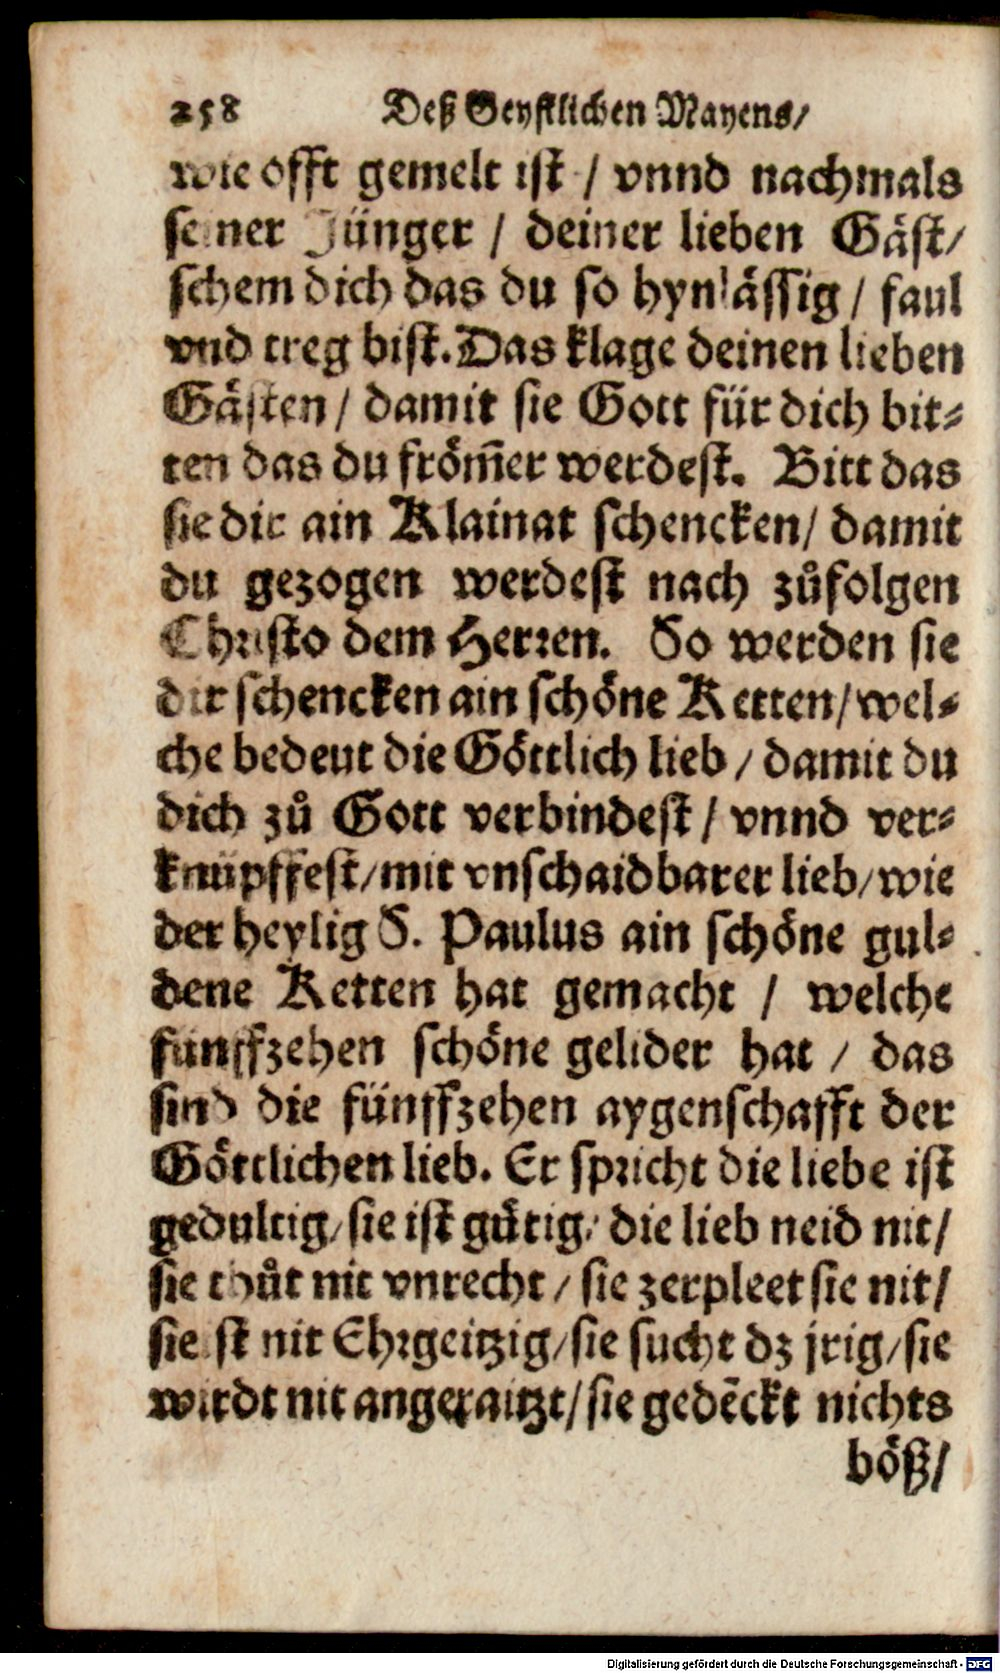 258 Deß Geystlichen Mayens/
wie offt gemelt ist / vnnd nachmals
seiner Jünger / deiner lieben Gäst/
schem dich das du so hynlässig / faul
vnd treg bist. Das klage deinen lieben
Gästen / damit sie Gott für dich bit⸗
ten das du from̃er werdest. Bitt das
sie dir ain Klainat schencken/ damit
du gezogen werdest nach zůfolgen
Christo dem Herren. So werden sie
dir schencken ain schöne Ketten/wel⸗
che bedeut die Göttlich lieb / damit du
dich zů Gott verbindest / vnnd ver⸗
knüpffest/mit vnschaidbarer lieb/wie
der heylig S. Paulus ain schöne gul⸗
dene Ketten hat gemacht / welche
fünffzehen schöne gelider hat / das
sind die fünffzehen aygenschafft der
Göttlichen lieb. Er spricht die liebe ist
gedultig/sie ist gütig/ die lieb neid nit/
sie thůt nit vnrecht / sie zerpleet sie nit/
sie ist nit Ehrgeitzig/sie sucht dz jrig/sie
wirdt nit angeraitzt/sie gedẽckt nichts
böß/
Digitalisierung gefördert durch die Deutsche Forschungsgemeinschaft - DFG